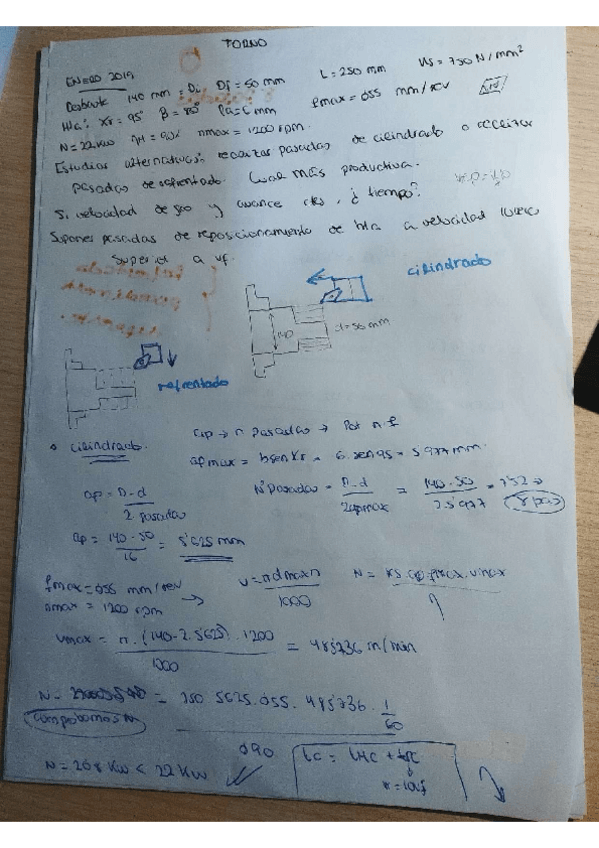 TORNO
ENERO 2019
Desbaste 140 mm = Di Df = 50 mm L = 250 mm Ws = 750 N/mm²
Hta: Xr = 95° B = 80° mm fmax = 055 mm/rev
N = 22 KW nmax = 1200 rpm.
Estudios alternativas: realizar pasadas de cilindrado o realizar
pasadas de refrentado. Cual más productiva.
Si velocidad de giro y avance ctes, ¿ tiempo?
Supones pasadas de reposicionamiento de hta a velocidad
superior a vf.
cilindrado
140
refrentado
ap → n pasadas → Pot n.f
• Cilindrado.
apmax = bsenXr = 6.sen95 = 5'977 mm.
ap = D-d / 2 pasadas
Nº Pasadas = D-d / 2apmax = 140-50 / 2.5'977 = 7'52 →
ap = 140-50 / 16 = 5'625 mm
fmax = 055 mm/rev
nmax = 1200 rpm →
v = πdmaxn / 1000
N = KS.ap.fmax.vmax
vmax = π.(140-2.5625).1200 / 1000 = 485'736 m/min
N = = 750 5625.055.485'736.1/60
090
comprobamos N
N = 20'8 KW < 22 KW